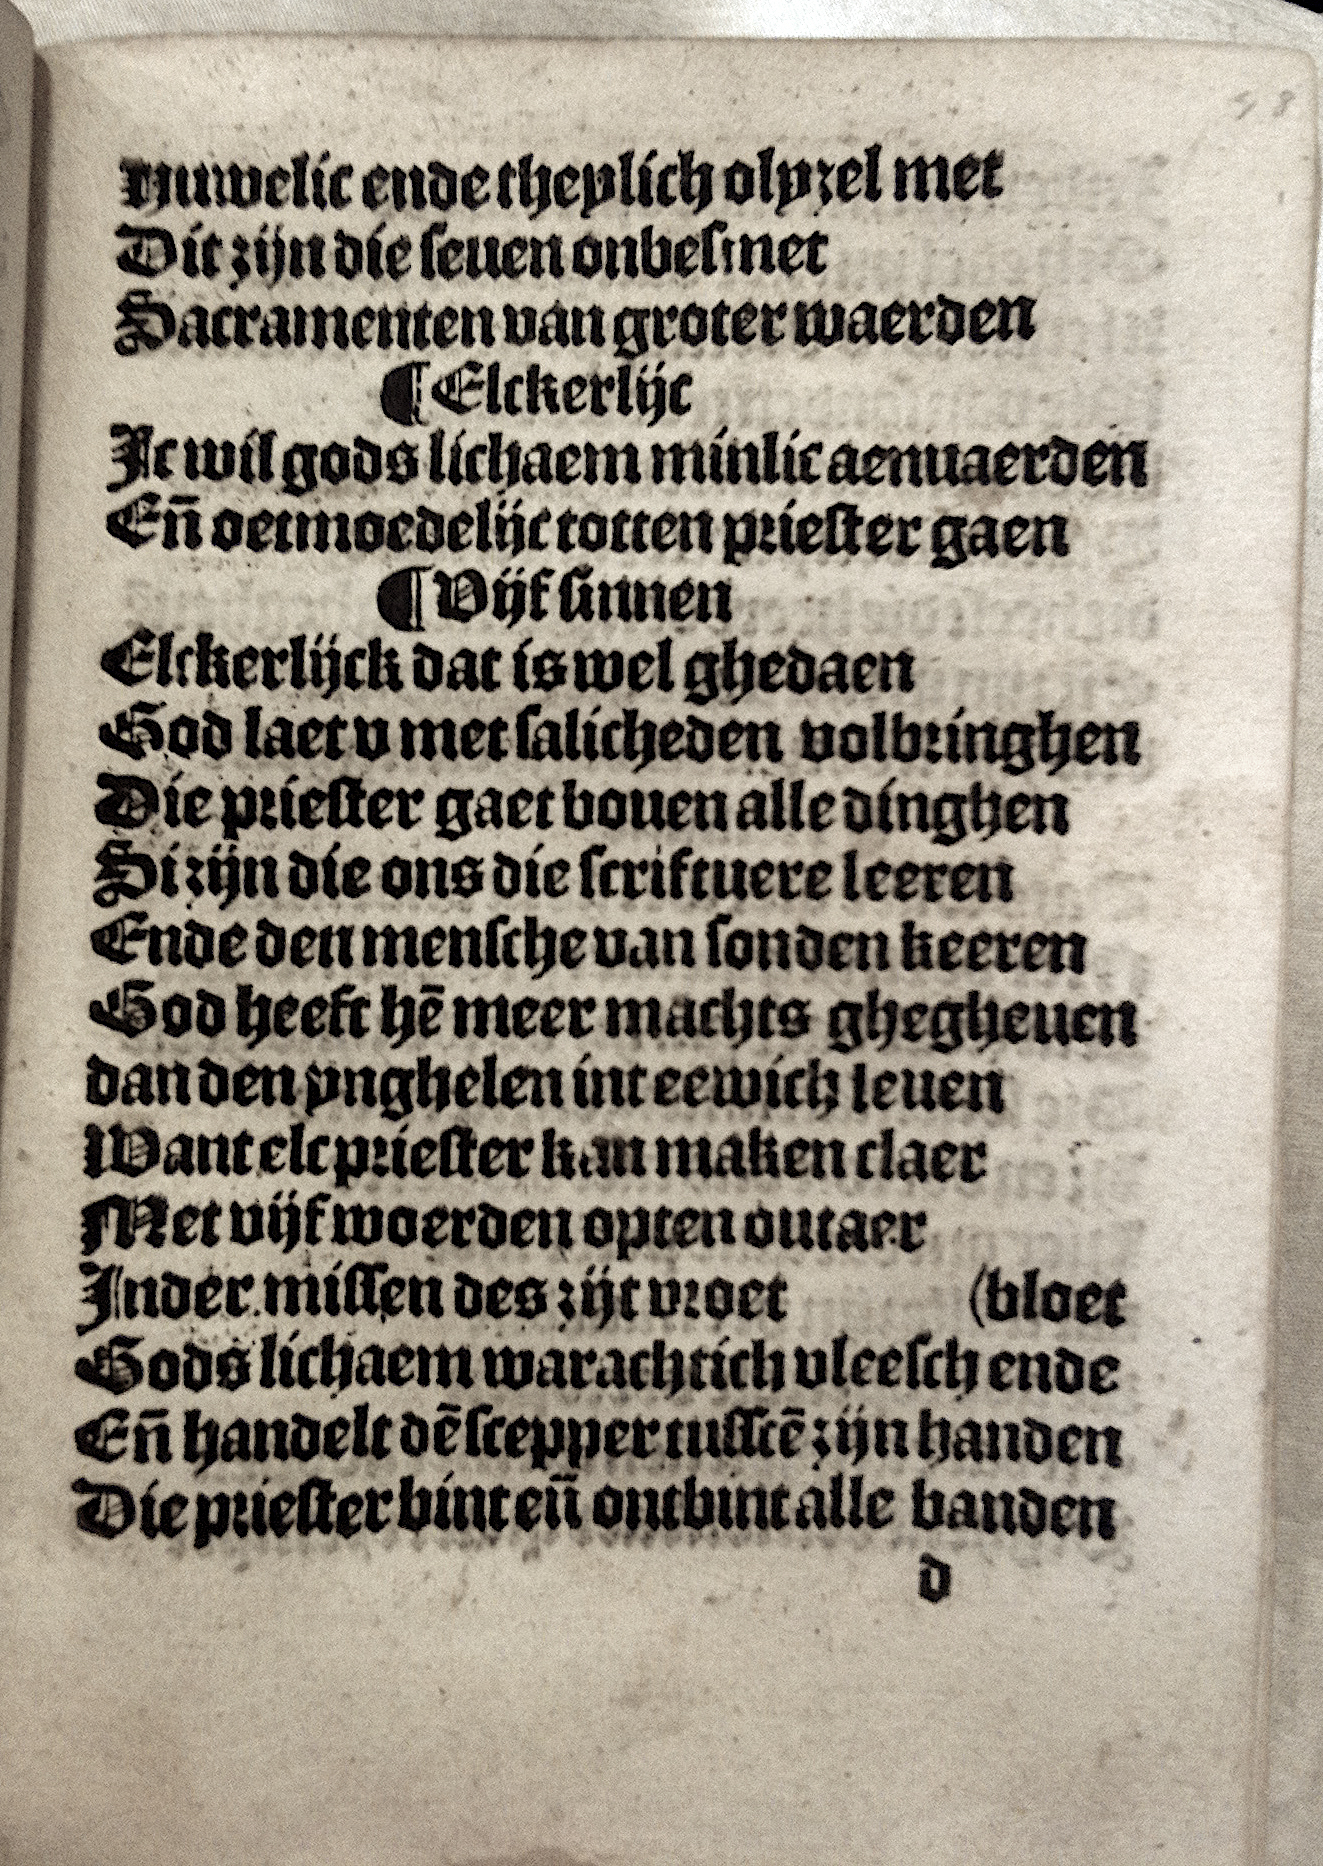 Huwelic ende theylich olyzel met
Dit zijn die seuen onbesmet
Sacramenten van groter waerden
¶ Elckerlijc
Ic wil gods lichaem minlic aenuaerden
Eñ oetmoedelijc totten priester gaen
¶ Vijf sinnen
Elckerlijck dat is wel ghedaen
God laet v met salicheden volbringhen
Die priester gaet bouen alle dinghen
Si zijn die ons die scriftuere leeren
Ende den mensche van sonden keeren
God heeft hē meer machts ghegheuen
dan den ynghelen int eewich leuen
Want elc priester kan maken claer
Met vijf woerden opten outaer
Inder missen des zijt vroet (bloet
Gods lichaem warachtich vleesch ende
Eñ handelt dē scepper tusscē zijn handen
Die priester bint eñ ontbint alle banden
d